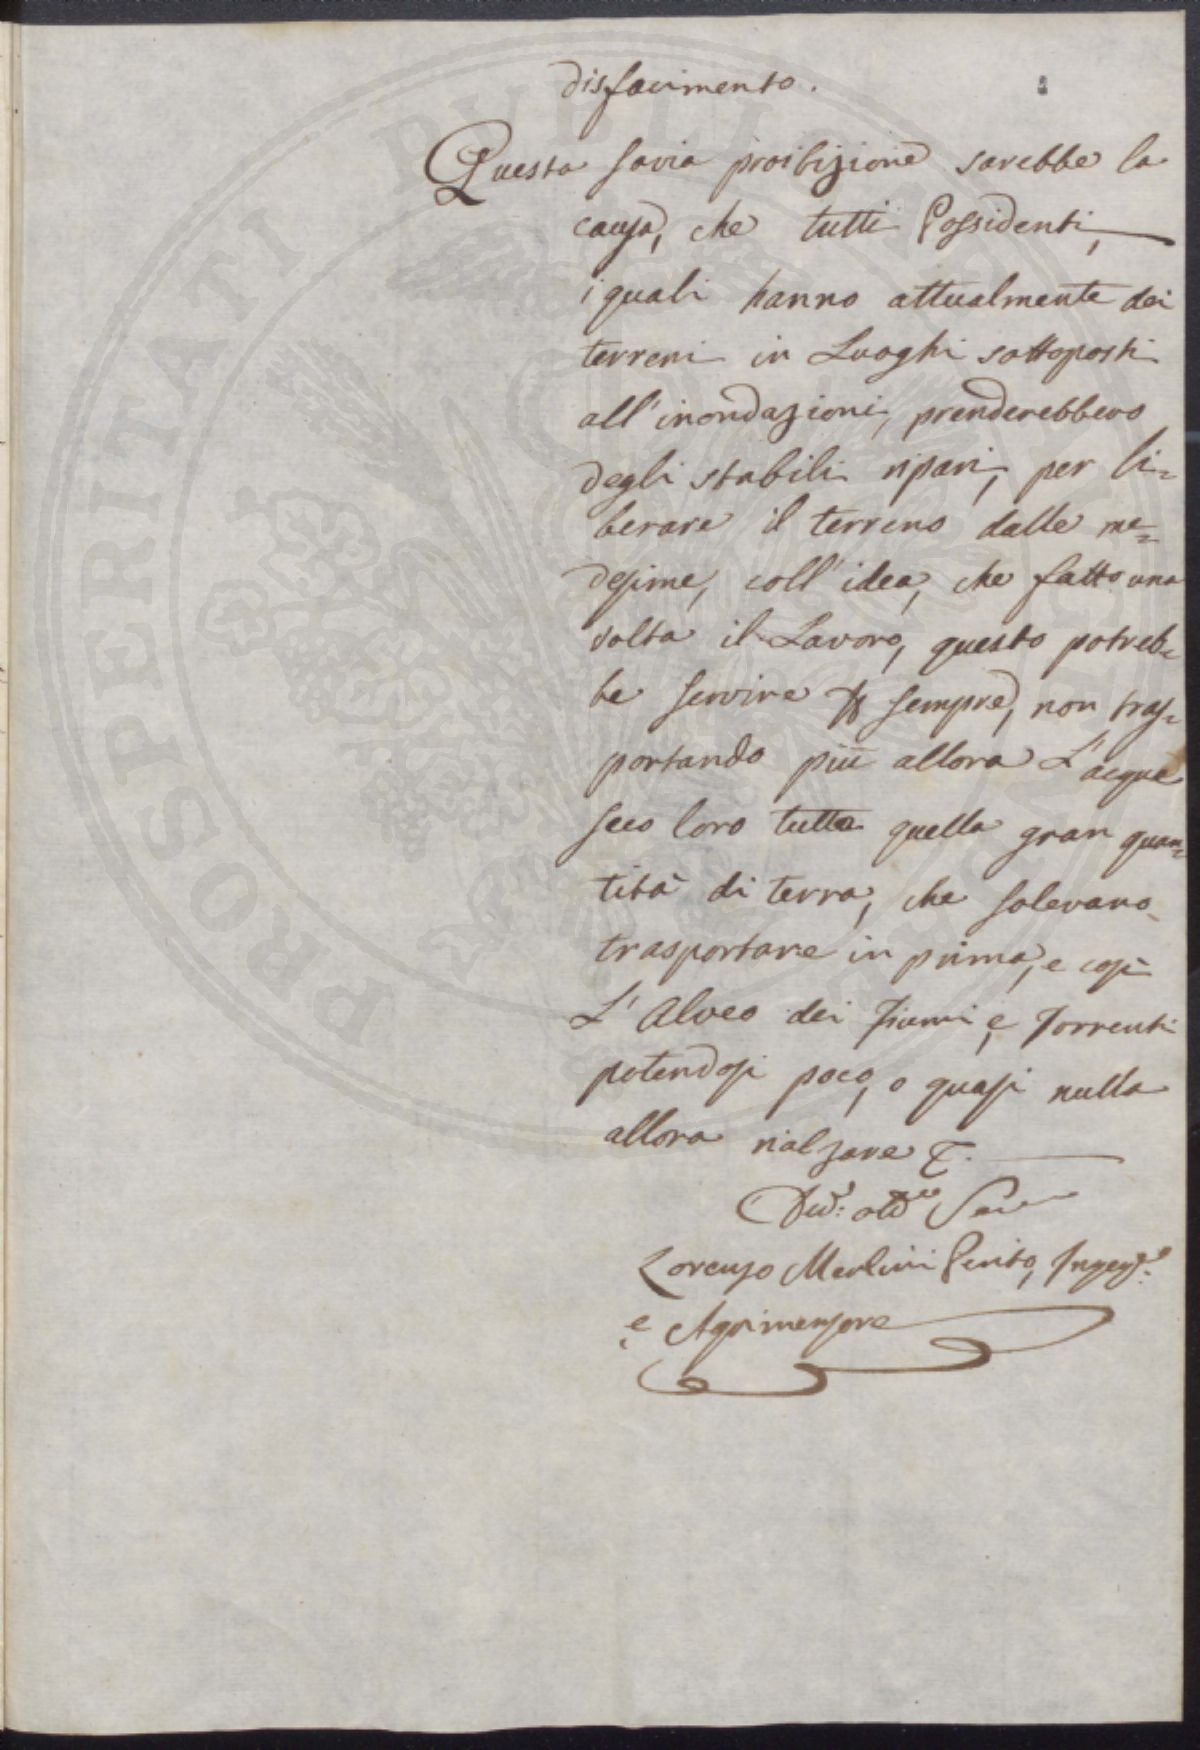 disfacimento.
Questa savia proibizione sarebbe la
causa, che tutti Possidenti,
i quali hanno attualmente dei
terreni in Luoghi sottoposti
all'inondazioni, prenderebbero
degli stabili ripari, per li=
berare il terreno dalle me=
desime, coll'idea, che fatto una
volta il Lavoro, questo potreb=
be servire sempre, non tras=
portando più allora L'acque
seco loro tutta quella gran quan=
tità di terra, che solevano
trasportare in prima, e così
L'Alveo dei Fiumi, e Torrenti
potendosi poco, o quasi nulla
allora rialzare
Lorenzo Merlini Perito, Ingeg:re
e Agrimensore
PROSPERITATI PUBLICAE